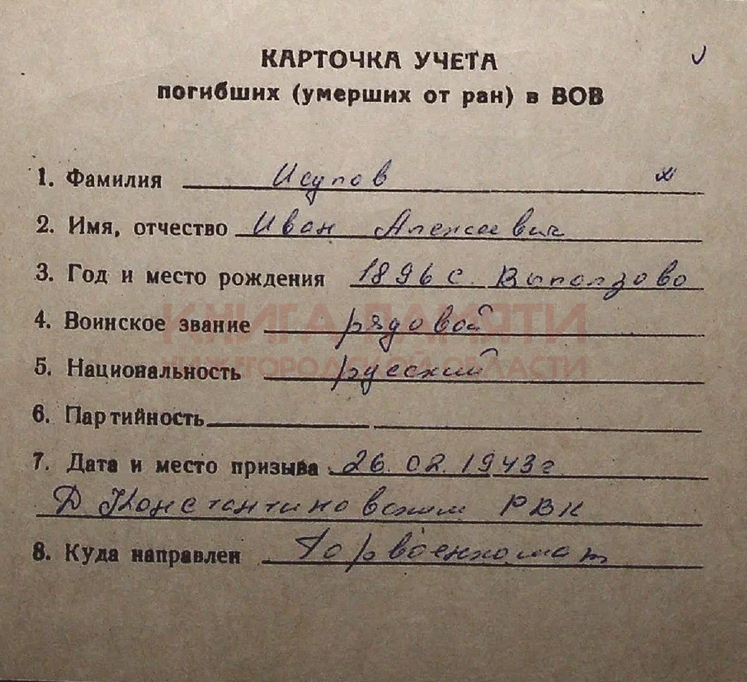 КАРТОЧКА УЧЕТА
погибших (умерших от ран) в ВОВ
1. Фамилия Исупов
2. Имя, отчество Иван Алексеевич
3. Год и место рождения 1896 с. Выползово
КНИГА ПАМЯТИ
4. Воинское звание рядовой
НИЖЕГОРОДСКОЙ ОБЛАСТИ
5. Национальность русский
6. Партийность
7. Дата и место призыва 26.02.1943г
Д Константиновским РВК
8. Куда направлен Горвоенкомат